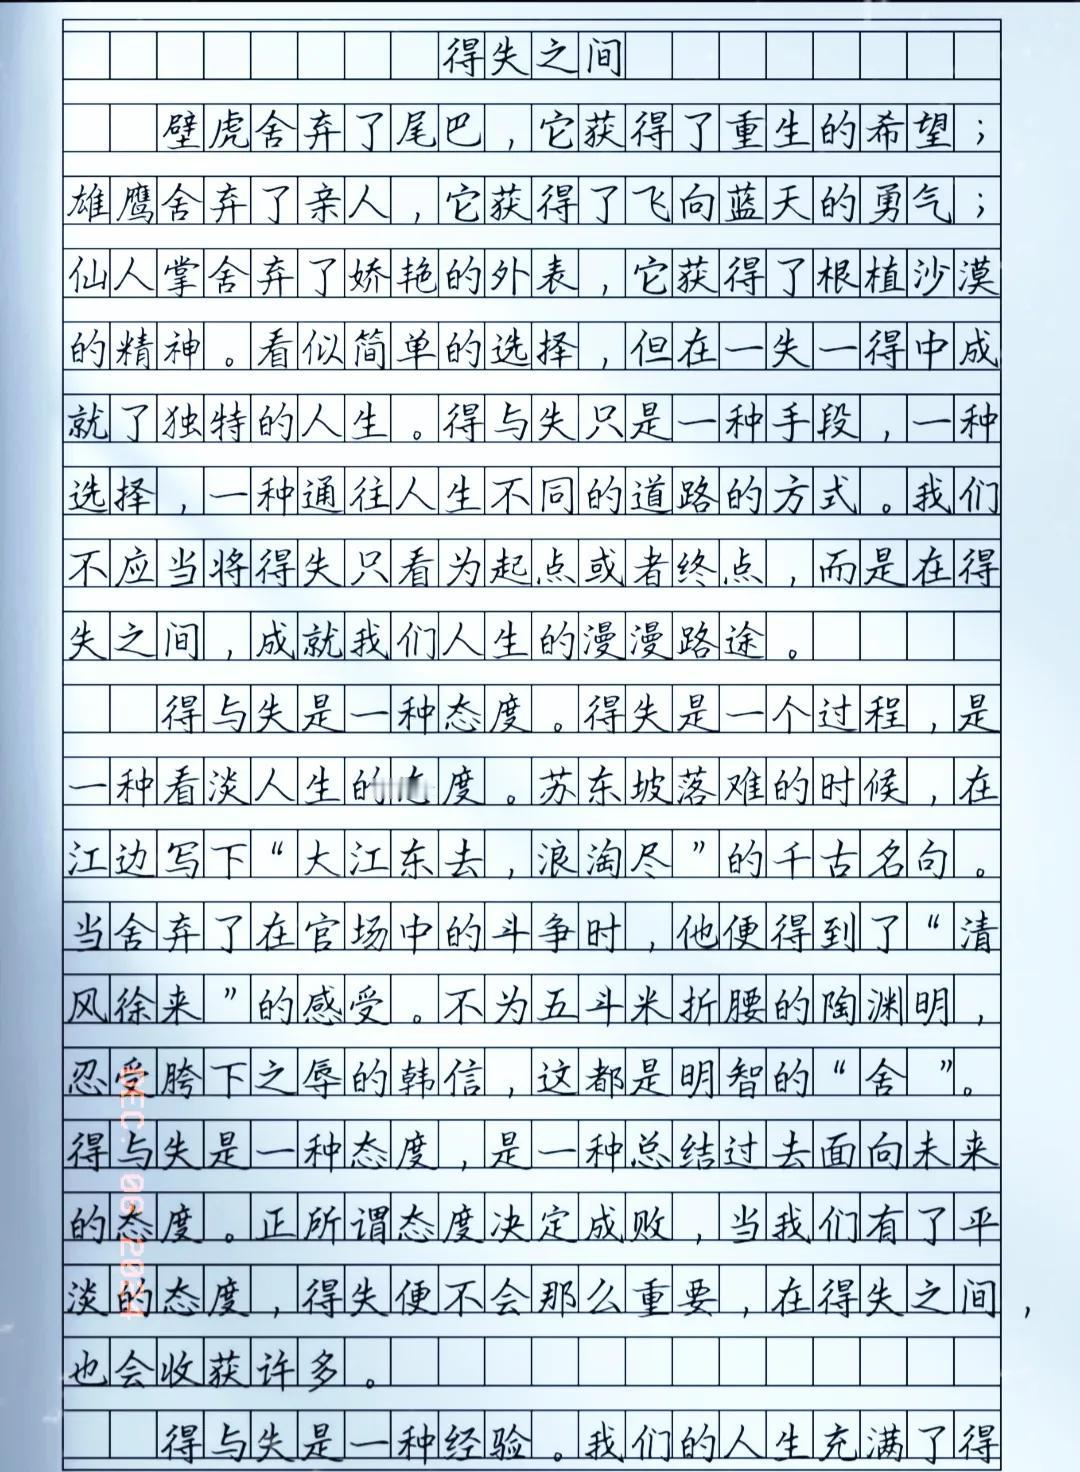 得失之间
壁虎舍弃了尾巴，它获得了重生的希望；
雄鹰舍弃了亲人，它获得了飞向蓝天的勇气；
仙人掌舍弃了娇艳的外表，它获得了根植沙漠
的精神。看似简单的选择，但在一失一得中成
就了独特的人生。得与失只是一种手段，一种
选择，一种通往人生不同的道路的方式。我们
不应当将得失只看为起点或者终点，而是在得
失之间，成就我们人生的漫漫路途。
得与失是一种态度。得失是一个过程，是
一种看淡人生的度。苏东坡落难的时候，在
江边写下“大江东去，浪淘尽”的千古名句。
当舍弃了在官场中的斗争时，他便得到了“清
风徐来”的感受。不为五斗米折腰的陶渊明，
忍受胯下之辱的韩信，这都是明智的“舍”。
得与失是一种态度，是一种总结过去面向未来
的态度。正所谓态度决定成败，当我们有了平
淡的态度，得失便不会那么重要，在得失之间，
也会收获许多。
得与失是一种经验。我们的人生充满了得
DEC. 06 2024